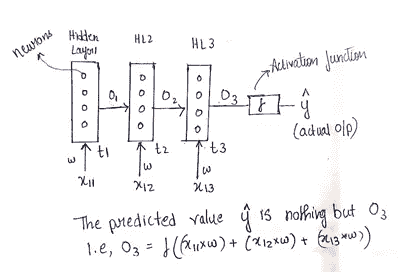 neurons
Hidden
Layer1
HL2
HL3
Activation function
O1
O2
O3
f
ŷ
(actual o/p)
t1
t2
t3
w
w
w
x11
x12
x13
The predicted value ŷ is nothing but O3
i.e, O3 = f((x11*w) + (x12*w) + (x13*w))